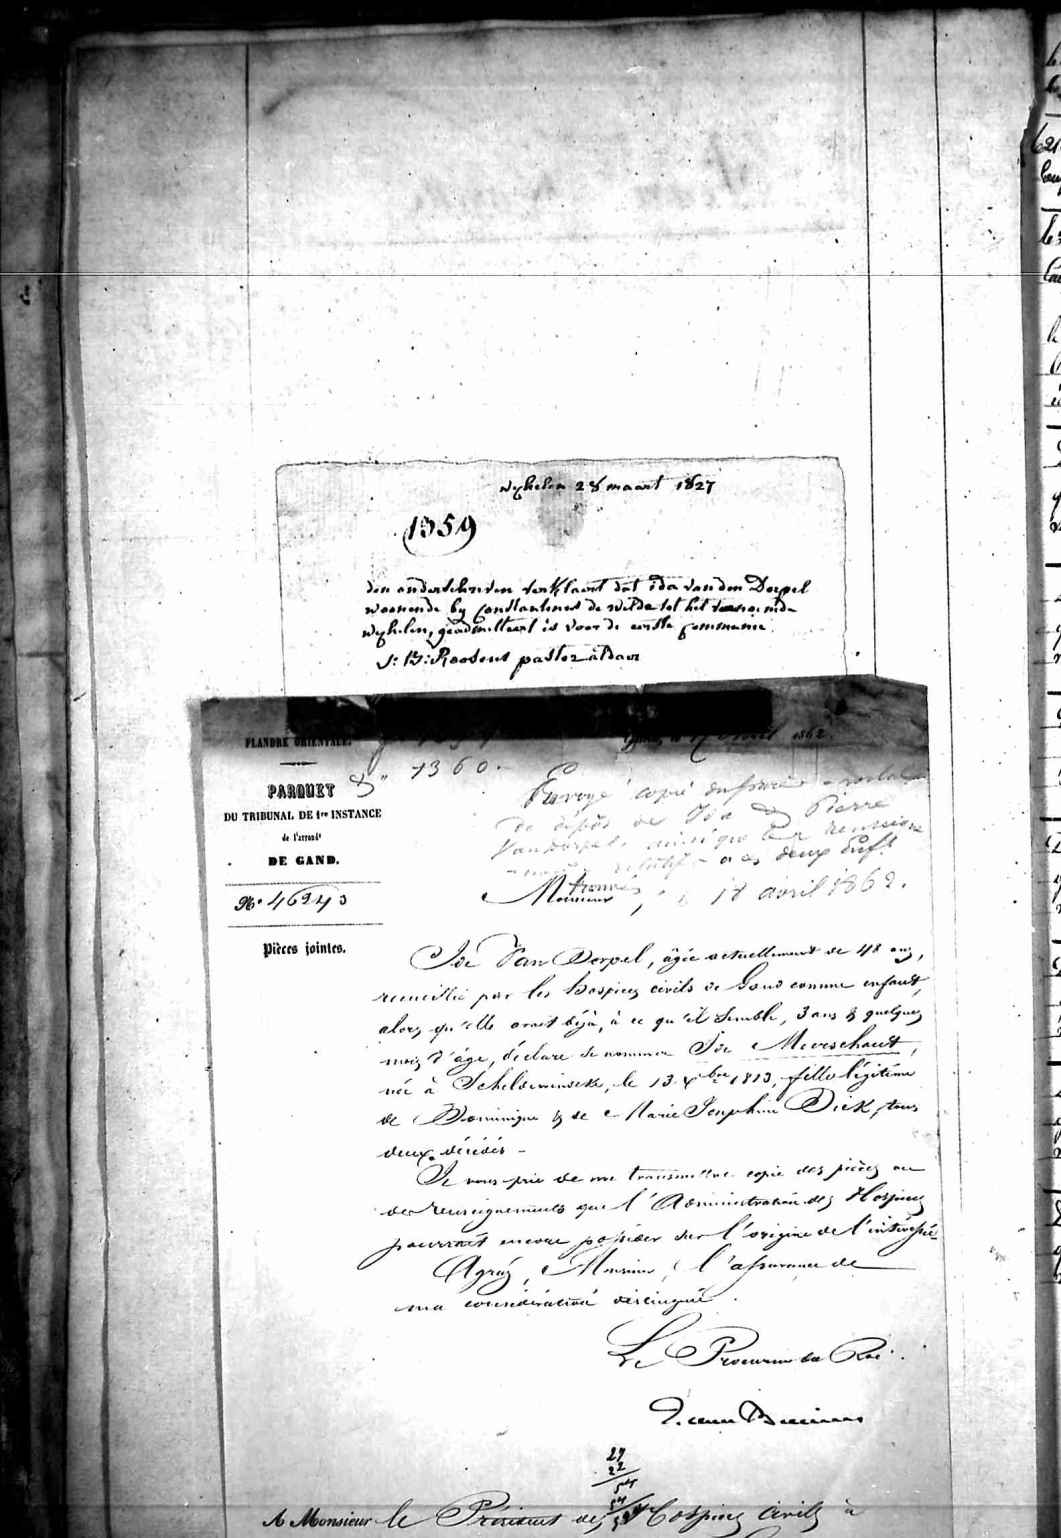 wyhelen 28 maart 1827
(1359)
den onderschreven verklaert dat ida van den Dorpel
woonende by Constantinus de wilde tot het
wyhelen, geadmitteert is voor de eerste Communie
J: B: Roosens pastor aldaer
FLANDRE ORIENTALE.
1862.
1360.
PARQUET
DU TRIBUNAL DE 1re INSTANCE
de l'arrondt
DE GAND.
No 46243
Pièces jointes.
Envoyé copie du
de dépôt de Ida & Pierre
Vandorpel, ainsi que
relatif a ces deux Enfts
trouvés, 18 avril 1862.
Monsieur,
Ide Van Dorpel, âgée actuellement de 48 ans,
recueillie par les hospices civils de Gand comme enfant,
alors qu'elle avait déjà, à ce qu'il semble, 3 ans & quelques
mois d'âge, déclare se nommer Ide Meerschaut,
née à Scheldewindeke, le 13 Xbre 1813, fille légitime
de Dominique & de Marie Josephine Dick, tous
deux décédés -
Je vous prie de me transmettre copie des pièces ou
des renseignements que l'Administration des Hospices
pourrait encore posséder sur l'origine de l'intéressée
Agréez, Monsieur, l'assurance de
ma considération distinguée.
Le Procureur du Roi.
27
22
54
54
A Monsieur le Président des Hospices Civils à